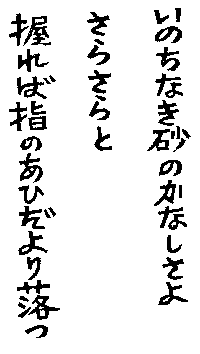 いのちなき砂のかなしさよ
さらさらと
握れば指のあひだより落つ